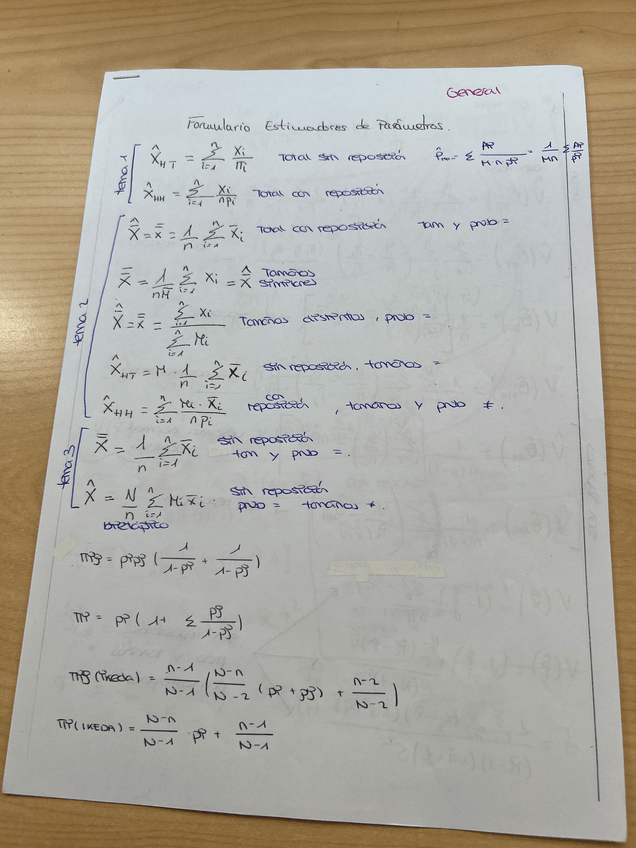 General
Formulario Estimadores de Parámetros.
tema 1
X̂_HT = Σ_{i=1}^{n} Xi/πi Total sin reposición
X̂_HH = Σ_{i=1}^{n} Xi/(npi) Total con reposición
tema 2
X̿̂ = x̿ = 1/n Σ_{i=1}^{n} X̄i Total con reposición tam y prob =
X̿ = 1/(nM) Σ_{i=1}^{n} Xi = X̿̂ Tamaños similares
X̿̂ = x̿ = Σ_{i=1}^{n} Xi / Σ_{i=1}^{n} Mi Tamaños distintos, prob =
X̂_HT = M · 1/n Σ_{i=1}^{n} X̄i sin reposición, tamaños =
X̂_HH = Σ_{i=1}^{n} Mi · X̄i/(npi) con reposición, tamaños y prob ≠.
tema 3
X̿̂ = 1/n Σ_{i=1}^{n} X̄i sin reposición tam y prob =.
X̂ = N/n Σ_{i=1}^{n} Mi x̄i. sin reposición prob = tamaños ≠.
bietápico
πij = pipj (1/(1-pi) + 1/(1-pj))
πi = pi (1+ Σ pj/(1-pj))
πij (ikeda) = (n-1)/(N-1) ((N-n)/(N-2) (pi + pj) + (n-2)/(N-2))
πi (IKEDA) = (N-n)/(N-1) · pi + (n-1)/(N-1)